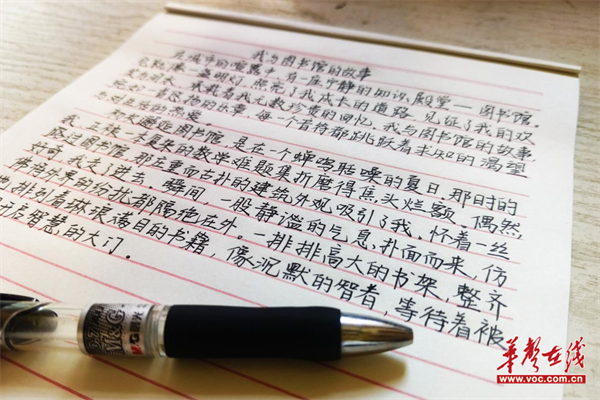 我与图书馆的故事
在城市的喧嚣中,有一座宁静的知识殿堂——图书馆,
一盏明灯,照亮了我成长的道路,见证了我的欢
承载着我无数珍贵的回忆。我与图书馆的故事,
宛如一首悠扬的乐章,每一个音符都跳跃着求知的渴望
与对生活的热爱。
初次邂逅图书馆,是在一个蝉鸣聒噪的夏日,那时的
我正被一大的数学难题集折磨得焦头烂额,偶然
路过图书馆,那庄重而古朴的建筑外观吸引了我,怀着一丝
好奇,我走了进去。瞬间,一股静谧的气息扑面而来,仿
佛将外界的纷扰都隔绝在外。一排排高大的书架,整齐
地排列着琳琅满目的书籍,像沉默的智者,等待着被
打开智慧的大门。
M&G
华声在线
www.voc.com.cn